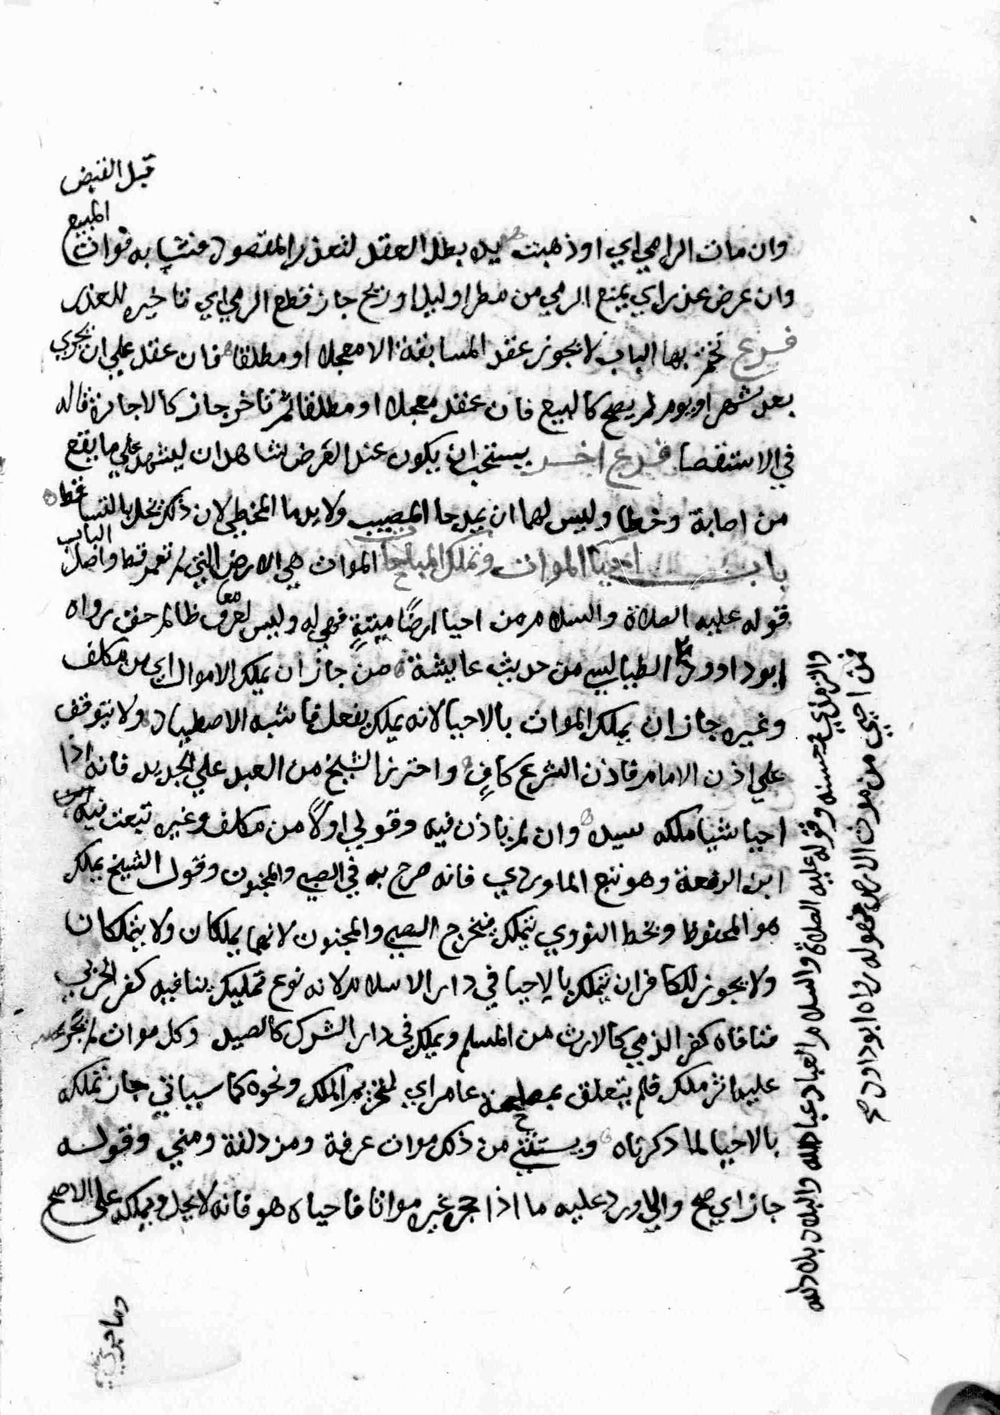 قبل القبض
المبيع
وان مات الرامي اي او ذهبت يده بطل العقد لتعذر المقصود فتشابه فوات
وان عرض عذر اي يمنع الرمي من مطر او ليل او ريح جاز قطع الرمي اي تاخيره للعذر
فرع نختم بها الباب لا يجوز عقد المسابقة الا معجلا او مطلقا فان عقد علي ان يجري
بعد شهر او يوم لم يصح كالبيع فان عقد معجلا او مطلقا ثم تاخر جاز كالاجارة قاله
في الاستقصا فرع اخر يستحب ان يكون عند الغرض شاهدان ليشهد علي ما يقع
من اصابة وخطا وليس لهما ان يمدحا المصيب ولا يذما المخطي لان ذلك يخل بالنشاط
باب احيا الموات وتملك المباحات الموات هي الارض التي لم تعمر قط واصل
الباب
قوله عليه الصلاة والسلام من احيا ارضا ميتة فهي له وليس لعرق ظالم حق رواه
ابو داوود الطيالسي من حديث عايشة من جاز ان يملك الاموال اي من مكلف
وغيره جاز ان يملك الموات بالاحيا لانه يملك بفعل فاشبه الاصطياد ولا يتوقف
علي اذن الامام فاذن الشرع كاف واحترز الشيخ من العبد علي الجديد فانه اذا
احيا شيا ملكه سيده وان لم ياذن فيه وقولي اولا من مكلف وغيره تبعت فيه
ابن الرفعة وهو تبع الماوردي فانه صرح به في الصبي والمجنون وقول الشيخ يملك
هو المحفوظ وبخط النووي يتملك فيخرج الصبي والمجنون لانهما يملكان ولا يتملكان
ولا يجوز للكافر ان يتملك بالاحيا في دار الاسلام لانه نوع تمليك ينافيه كفر الحربي
فنافاه كفر الذمي كالارث من المسلم ويملك في دار الشرك كالصيد وكل موات لم يجر
عليه اثر ملك فلم يتعلق بمصلحة عامر اي لحريم الملك ونحوه كما سياتي جاز تملكه
بالاحيا لما ذكرناه ويستثني من ذلك موات عرفة ومزدلفة ومني وقوله
جاز اي صح والا ورد عليه ما اذا حجر غيره مواتا فاحياه هو فانه لا يحل ويملكه علي الاصح
والترمذي وحسنه وقوله عليه الصلاة والسلام العباد عباد الله والبلاد بلاد الله
فمن احيي من موات الارض فهو له رواه ابو داود صح